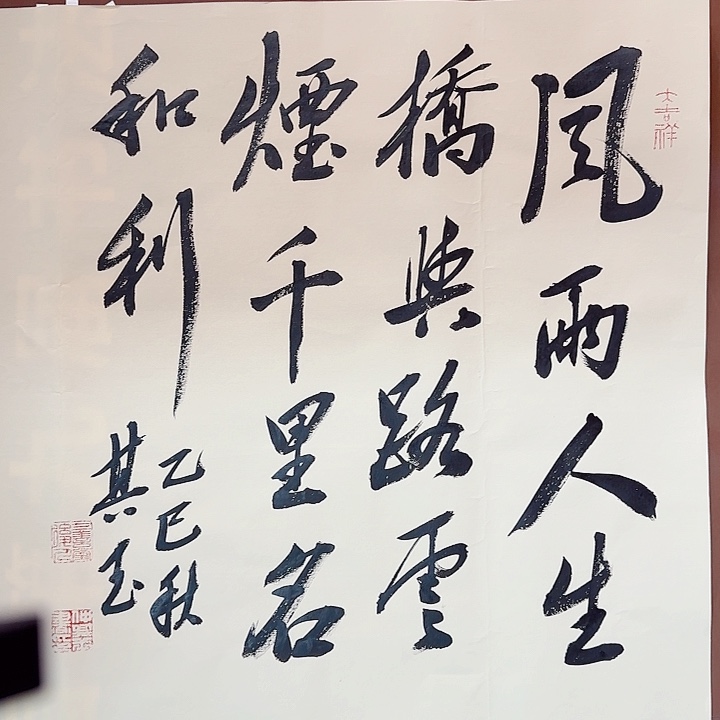 風雨人生
橋與路雲
煙千里名
和利
乙巳秋
其玉
大吉祥